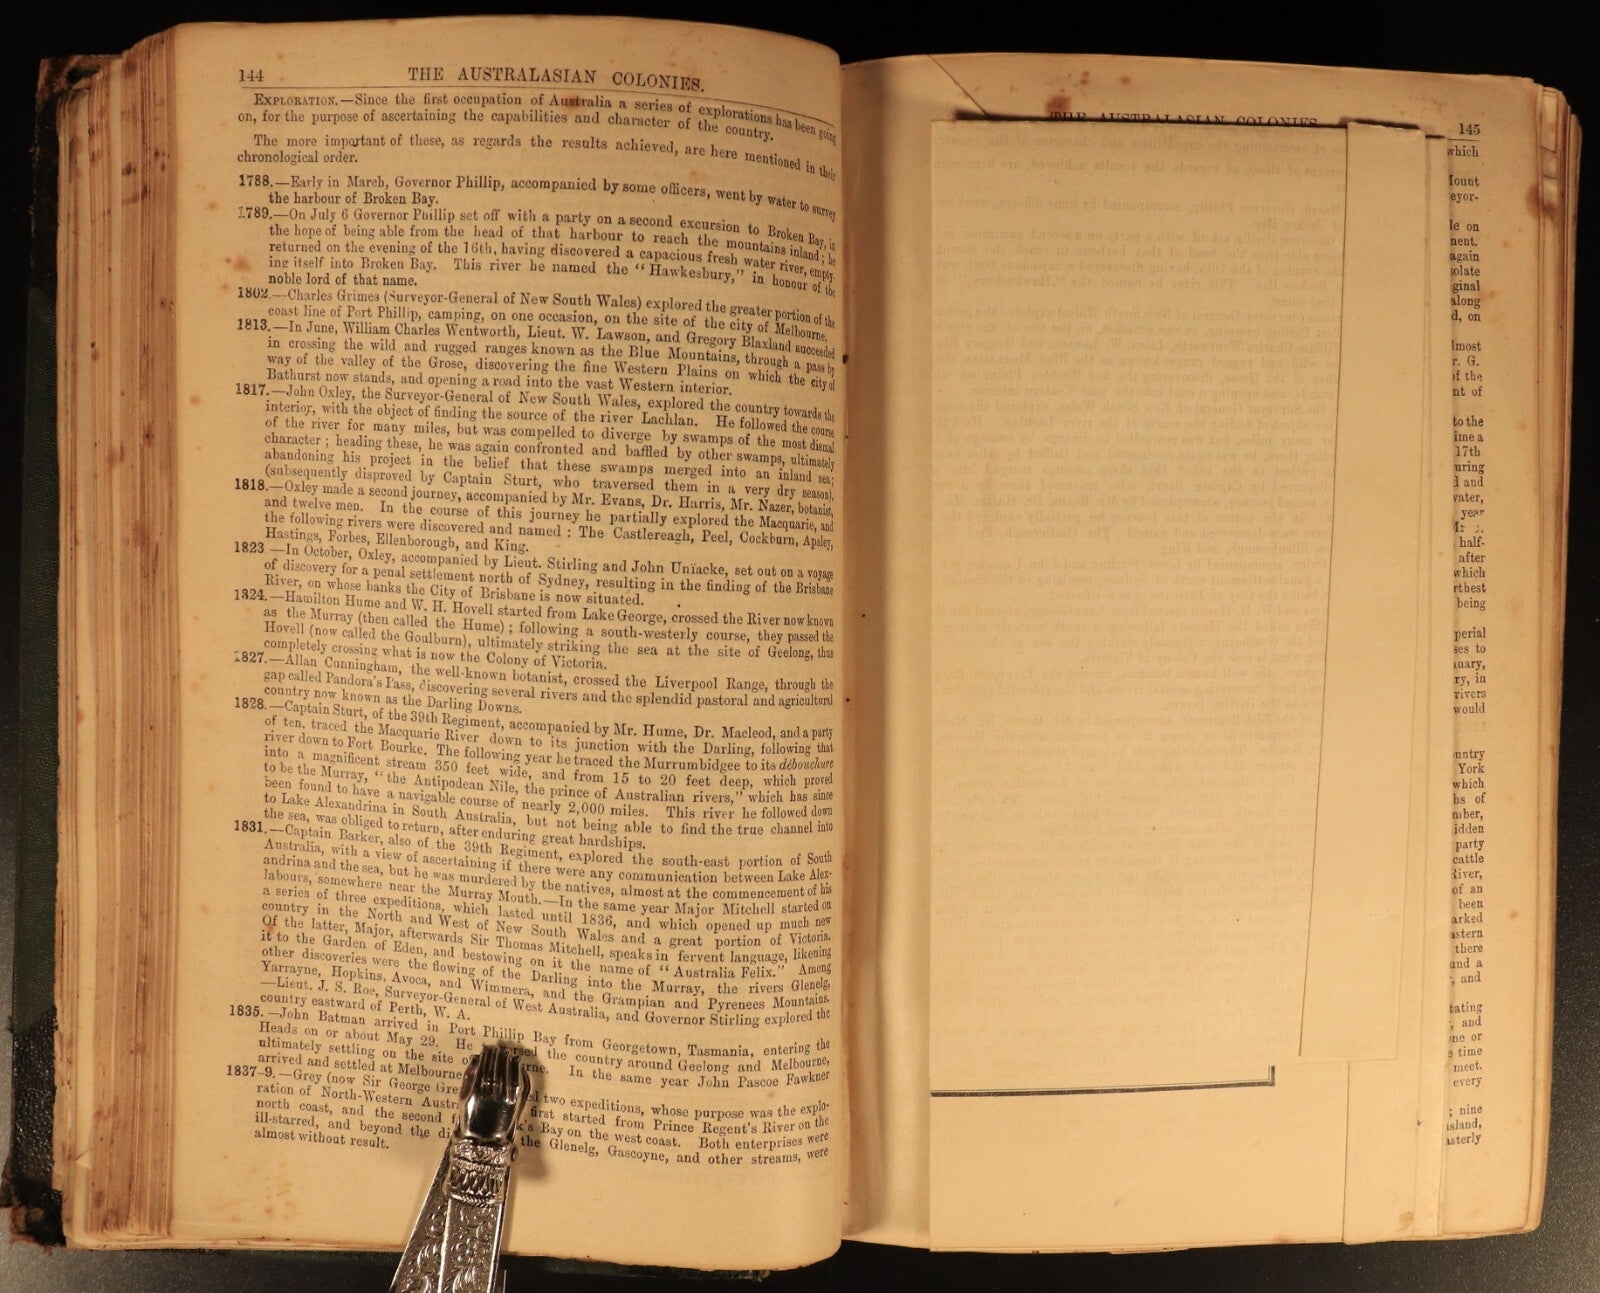 144
THE AUSTRALASIAN COLONIES.
EXPLORATION.—Since the first occupation of Australia a series of explorations has been going
on, for the purpose of ascertaining the capabilities and character of the country.
The more important of these, as regards the results achieved, are here mentioned in their
chronological order.
1788.—Early in March, Governor Phillip, accompanied by some officers, went by water to survey
the harbour of Broken Bay.
1789.—On July 6 Governor Phillip set off with a party on a second excursion to Broken Bay, in
the hope of being able from the head of that harbour to reach the mountains inland; he
returned on the evening of the 16th, having discovered a capacious fresh water river, empty-
ing itself into Broken Bay. This river he named the "Hawkesbury," in honour of the
noble lord of that name.
1802.—Charles Grimes (Surveyor-General of New South Wales) explored the greater portion of the
coast line of Port Phillip, camping, on one occasion, on the site of the city of Melbourne.
1813.—In June, William Charles Wentworth, Lieut. W. Lawson, and Gregory Blaxland succeeded
in crossing the wild and rugged ranges known as the Blue Mountains, through a pass by
way of the valley of the Grose, discovering the fine Western Plains on which the city of
Bathurst now stands, and opening a road into the vast Western interior.
1817.—John Oxley, the Surveyor-General of New South Wales, explored the country towards the
interior, with the object of finding the source of the river Lachlan. He followed the course
of the river for many miles, but was compelled to diverge by swamps of the most dismal
character; heading these, he was again confronted and baffled by other swamps, ultimately
abandoning his project in the belief that these swamps merged into an inland sea;
(subsequently disproved by Captain Sturt, who traversed them in a very dry season).
1818.—Oxley made a second journey, accompanied by Mr. Evans, Dr. Harris, Mr. Nazer, botanist,
and twelve men. In the course of this journey he partially explored the Macquarie, and
the following rivers were discovered and named: The Castlereagh, Peel, Cockburn, Apsley,
Hastings, Forbes, Ellenborough, and King.
1823—In October, Oxley, accompanied by Lieut. Stirling and John Uniacke, set out on a voyage
of discovery for a penal settlement north of Sydney, resulting in the finding of the Brisbane
River, on whose banks the City of Brisbane is now situated.
1824.—Hamilton Hume and W. H. Hovell started from Lake George, crossed the River now known
as the Murray (then called the Hume); following a south-westerly course, they passed the
Hovell (now called the Goulburn), ultimately striking the sea at the site of Geelong, thus
completely crossing what is now the Colony of Victoria.
1827.—Allan Cunningham, the well-known botanist, crossed the Liverpool Range, through the
gap called Pandora's Pass, discovering several rivers and the splendid pastoral and agricultural
country now known as the Darling Downs.
1828.—Captain Sturt, of the 39th Regiment, accompanied by Mr. Hume, Dr. Macleod, and a party
of ten, traced the Macquarie River down to its junction with the Darling, following that
river down to Fort Bourke. The following year he traced the Murrumbidgee to its débouchure
into a magnificent stream 350 feet wide, and from 15 to 20 feet deep, which proved
to be the Murray, "the Antipodean Nile, the prince of Australian rivers," which has since
been found to have a navigable course of nearly 2,000 miles. This river he followed down
to Lake Alexandrina in South Australia, but not being able to find the true channel into
the sea, was obliged to return, after enduring great hardships.
1831.—Captain Barker, also of the 39th Regiment, explored the south-east portion of South
Australia, with a view of ascertaining if there were any communication between Lake Alex-
andrina and the sea, but he was murdered by the natives, almost at the commencement of his
labours, somewhere near the Murray Mouth.—In the same year Major Mitchell started on
a series of three expeditions, which lasted until 1836, and which opened up much new
country in the North and West of New South Wales and a great portion of Victoria.
Of the latter, Major, afterwards Sir Thomas Mitchell, speaks in fervent language, likening
it to the Garden of Eden, and bestowing on it the name of "Australia Felix." Among
other discoveries were the flowing of the Darling into the Murray, the rivers Glenelg,
Yarrayne, Hopkins, Avoca, and Wimmera, and the Grampian and Pyrenees Mountains.
—Lieut. J. S. Roe, Surveyor-General of West Australia, and Governor Stirling explored the
country eastward of Perth, W. A.
1835.—John Batman arrived in Port Phillip Bay from Georgetown, Tasmania, entering the
Heads on or about May 29. He the country around Geelong and Melbourne,
ultimately settling on the site In the same year John Pascoe Fawkner
arrived and settled at Melbourne
1837-9.—Grey (now Sir George two expeditions, whose purpose was the explo-
ration of North-Western first started from Prince Regent's River on the
north coast, and the second Bay on the west coast. Both enterprises were
ill-starred, and beyond the the Glenelg, Gascoyne, and other streams, were
almost without result.
THE AUSTRALASIAN COLONIES
145
which
Mount
eyor-
le on
nent.
again
solate
ginal
along
d, on
lmost
r. G.
of the
nt of
to the
ime a
17th
uring
l and
vater,
year
half-
after
which
rthest
being
perial
ses to
nuary,
ry, in
rivers
would
untry
York
which
hs of
mber,
idden
party
cattle
River,
of an
been
arked
astern
there
and a
, and
tating
, and
one or
e time
meet.
every
; nine
island,
asterly